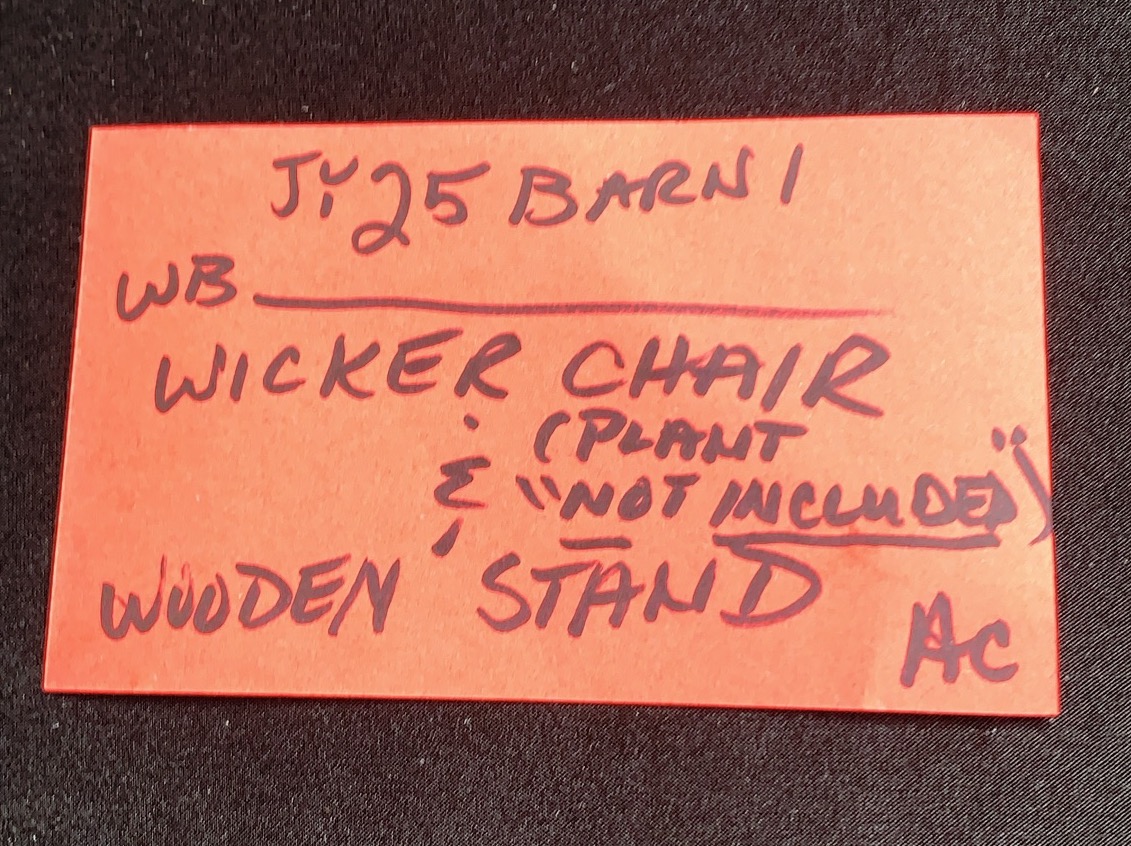 Jy 25 BARN 1
WB
WICKER CHAIR
& (PLANT
"NOT INCLUDED")
WOODEN STAND
AC